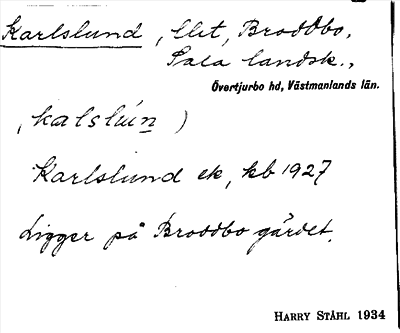 Karlslund, llet, Broddbo,
Sala landsk.,
Övertjurbo hd, Västmanlands län.
(kalslún)
Karlslund ek, kb 1927
Ligger på Broddbo gärdet.
HARRY STÅHL 1934